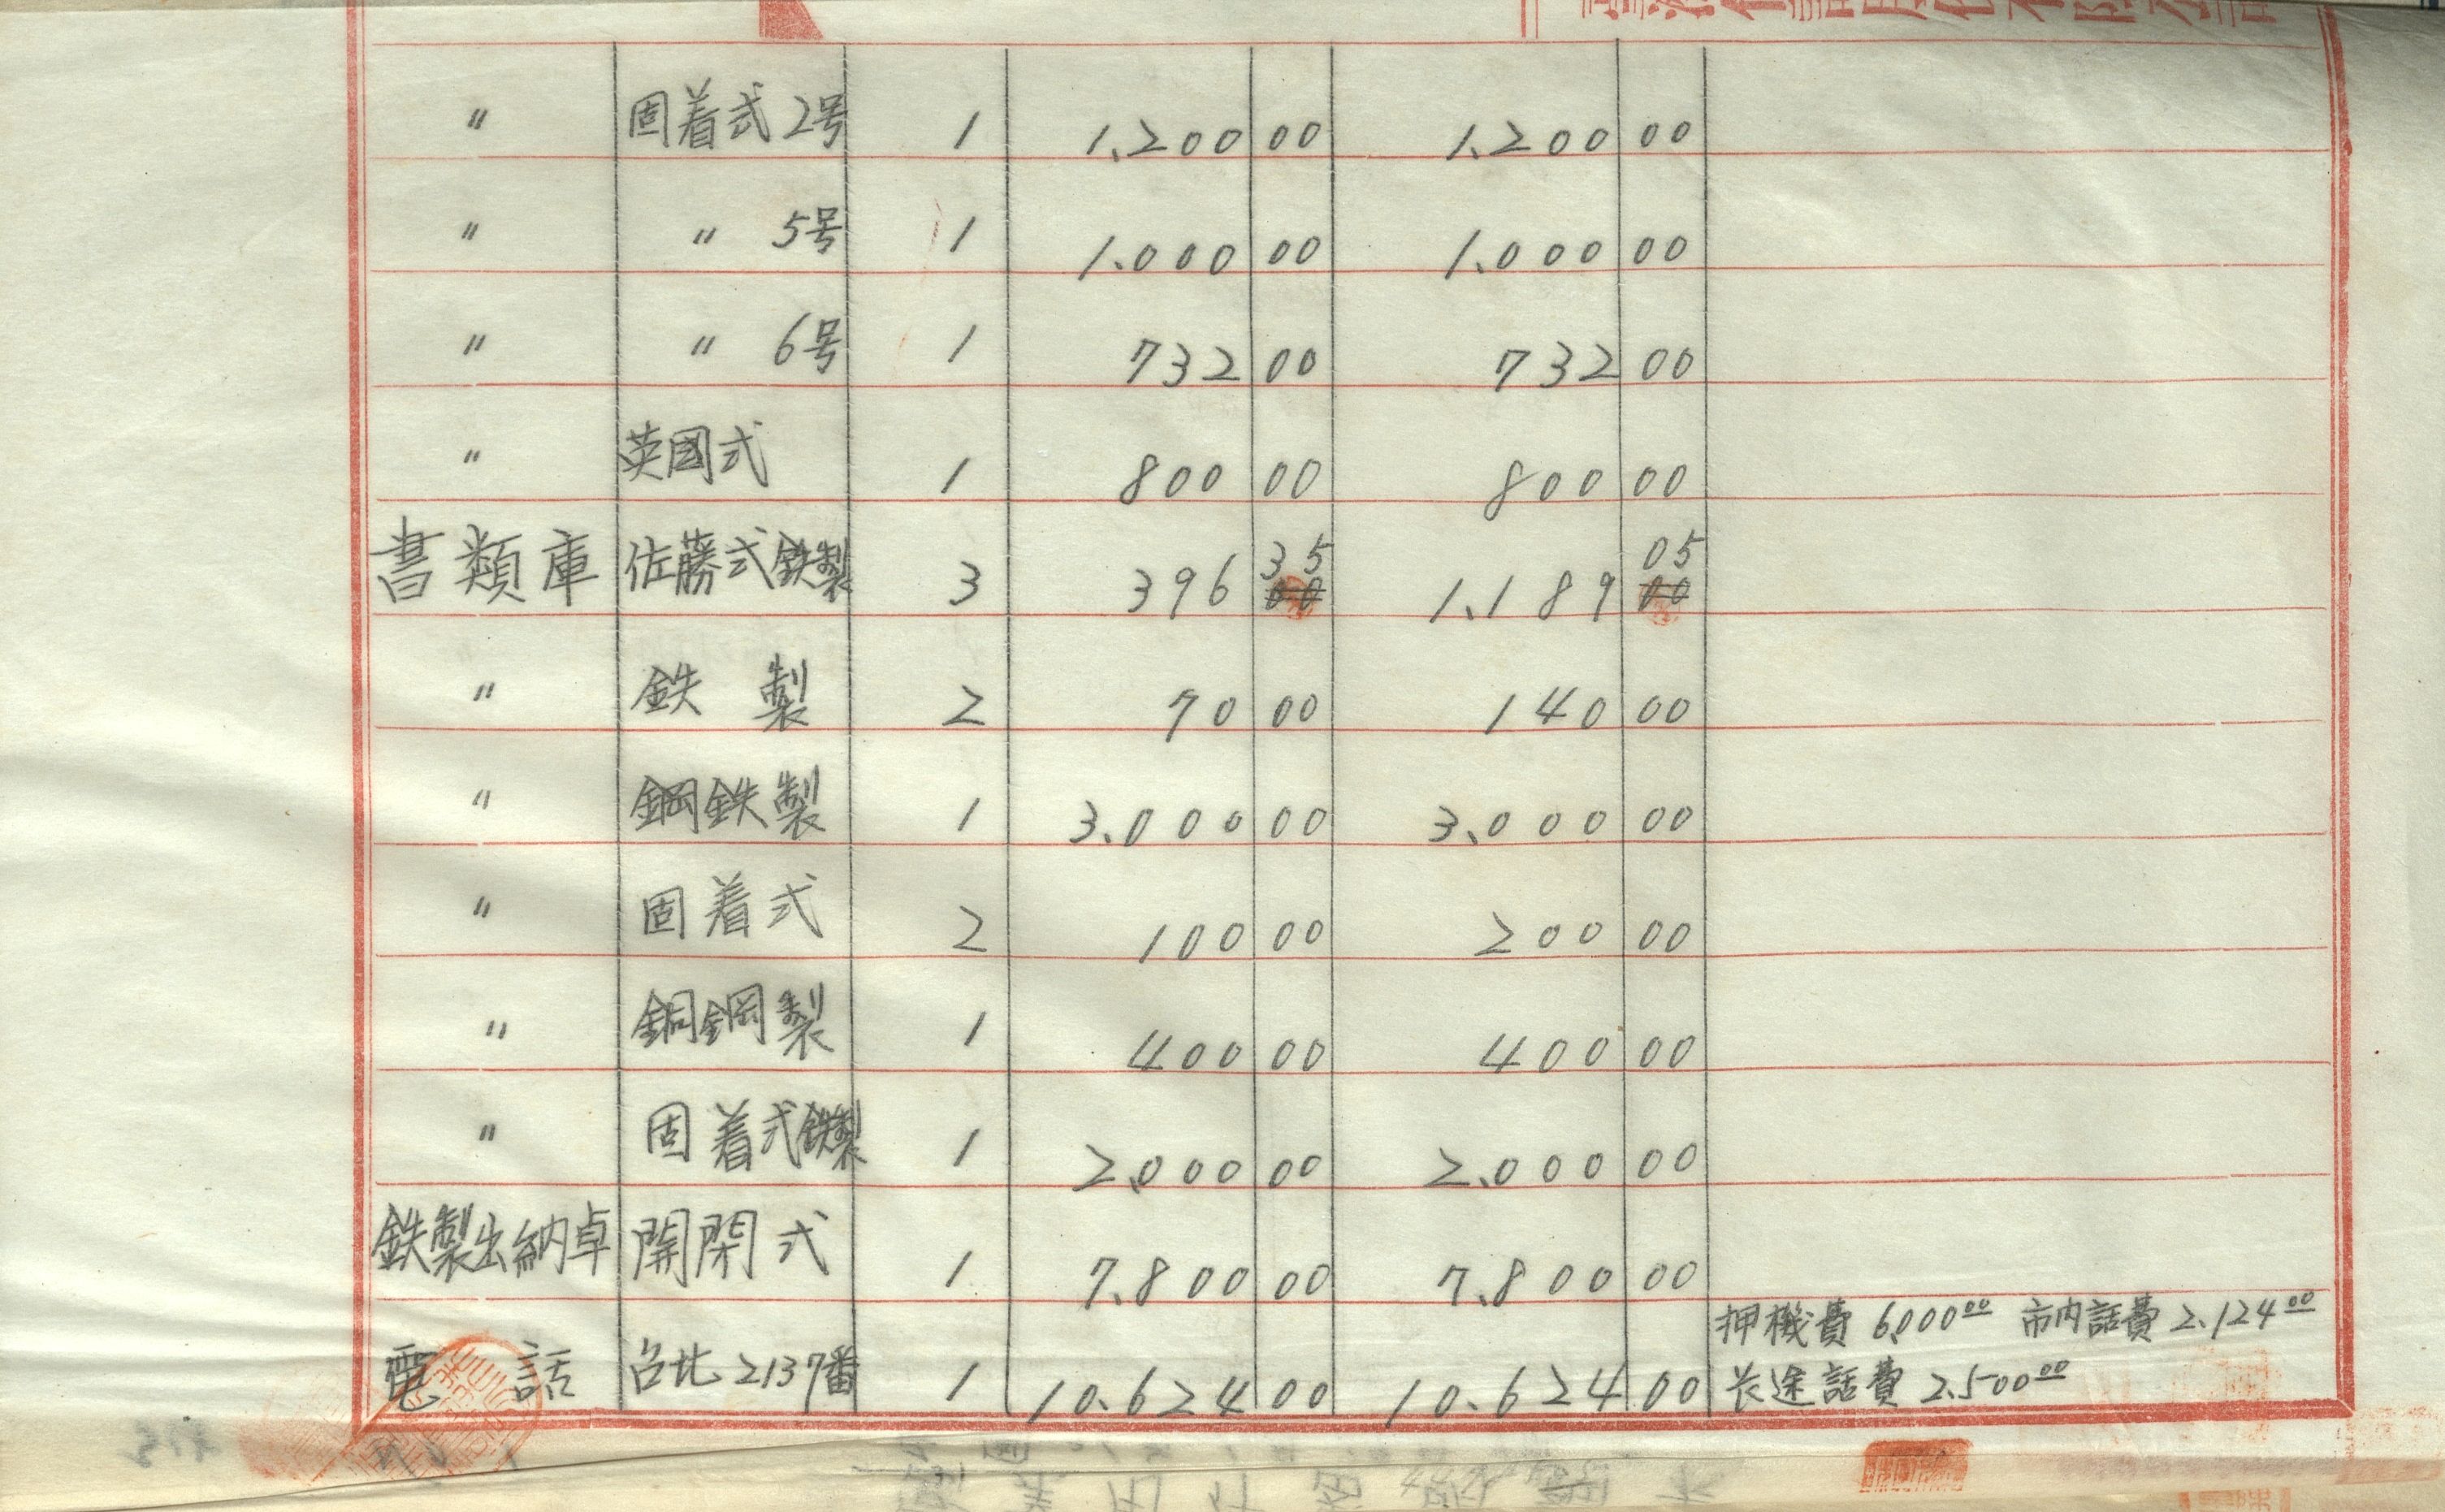 〃 固着式2号 1 1.200 00 1.200 00
〃 〃 5号 1 1.000 00 1.000 00
〃 〃 6号 1 732 00 732 00
〃 英國式 1 800 00 800 00
書類庫 佐藤式鉄製 3 396 35 00 1.189 05 00
〃 鉄製 2 70 00 140 00
〃 鋼鉄製 1 3.000 00 3.000 00
〃 固着式 2 100 00 200 00
〃 銅鋼製 1 400 00 400 00
〃 固着式鉄製 1 2.000 00 2.000 00
鉄製出納卓 開閉式 1 7.800 00 7.800 00
電話 台北2137番 1 10.624 00 10.624 00
押機費 6.000 00 市内話費 2.124 00
长途話費 2.500 00